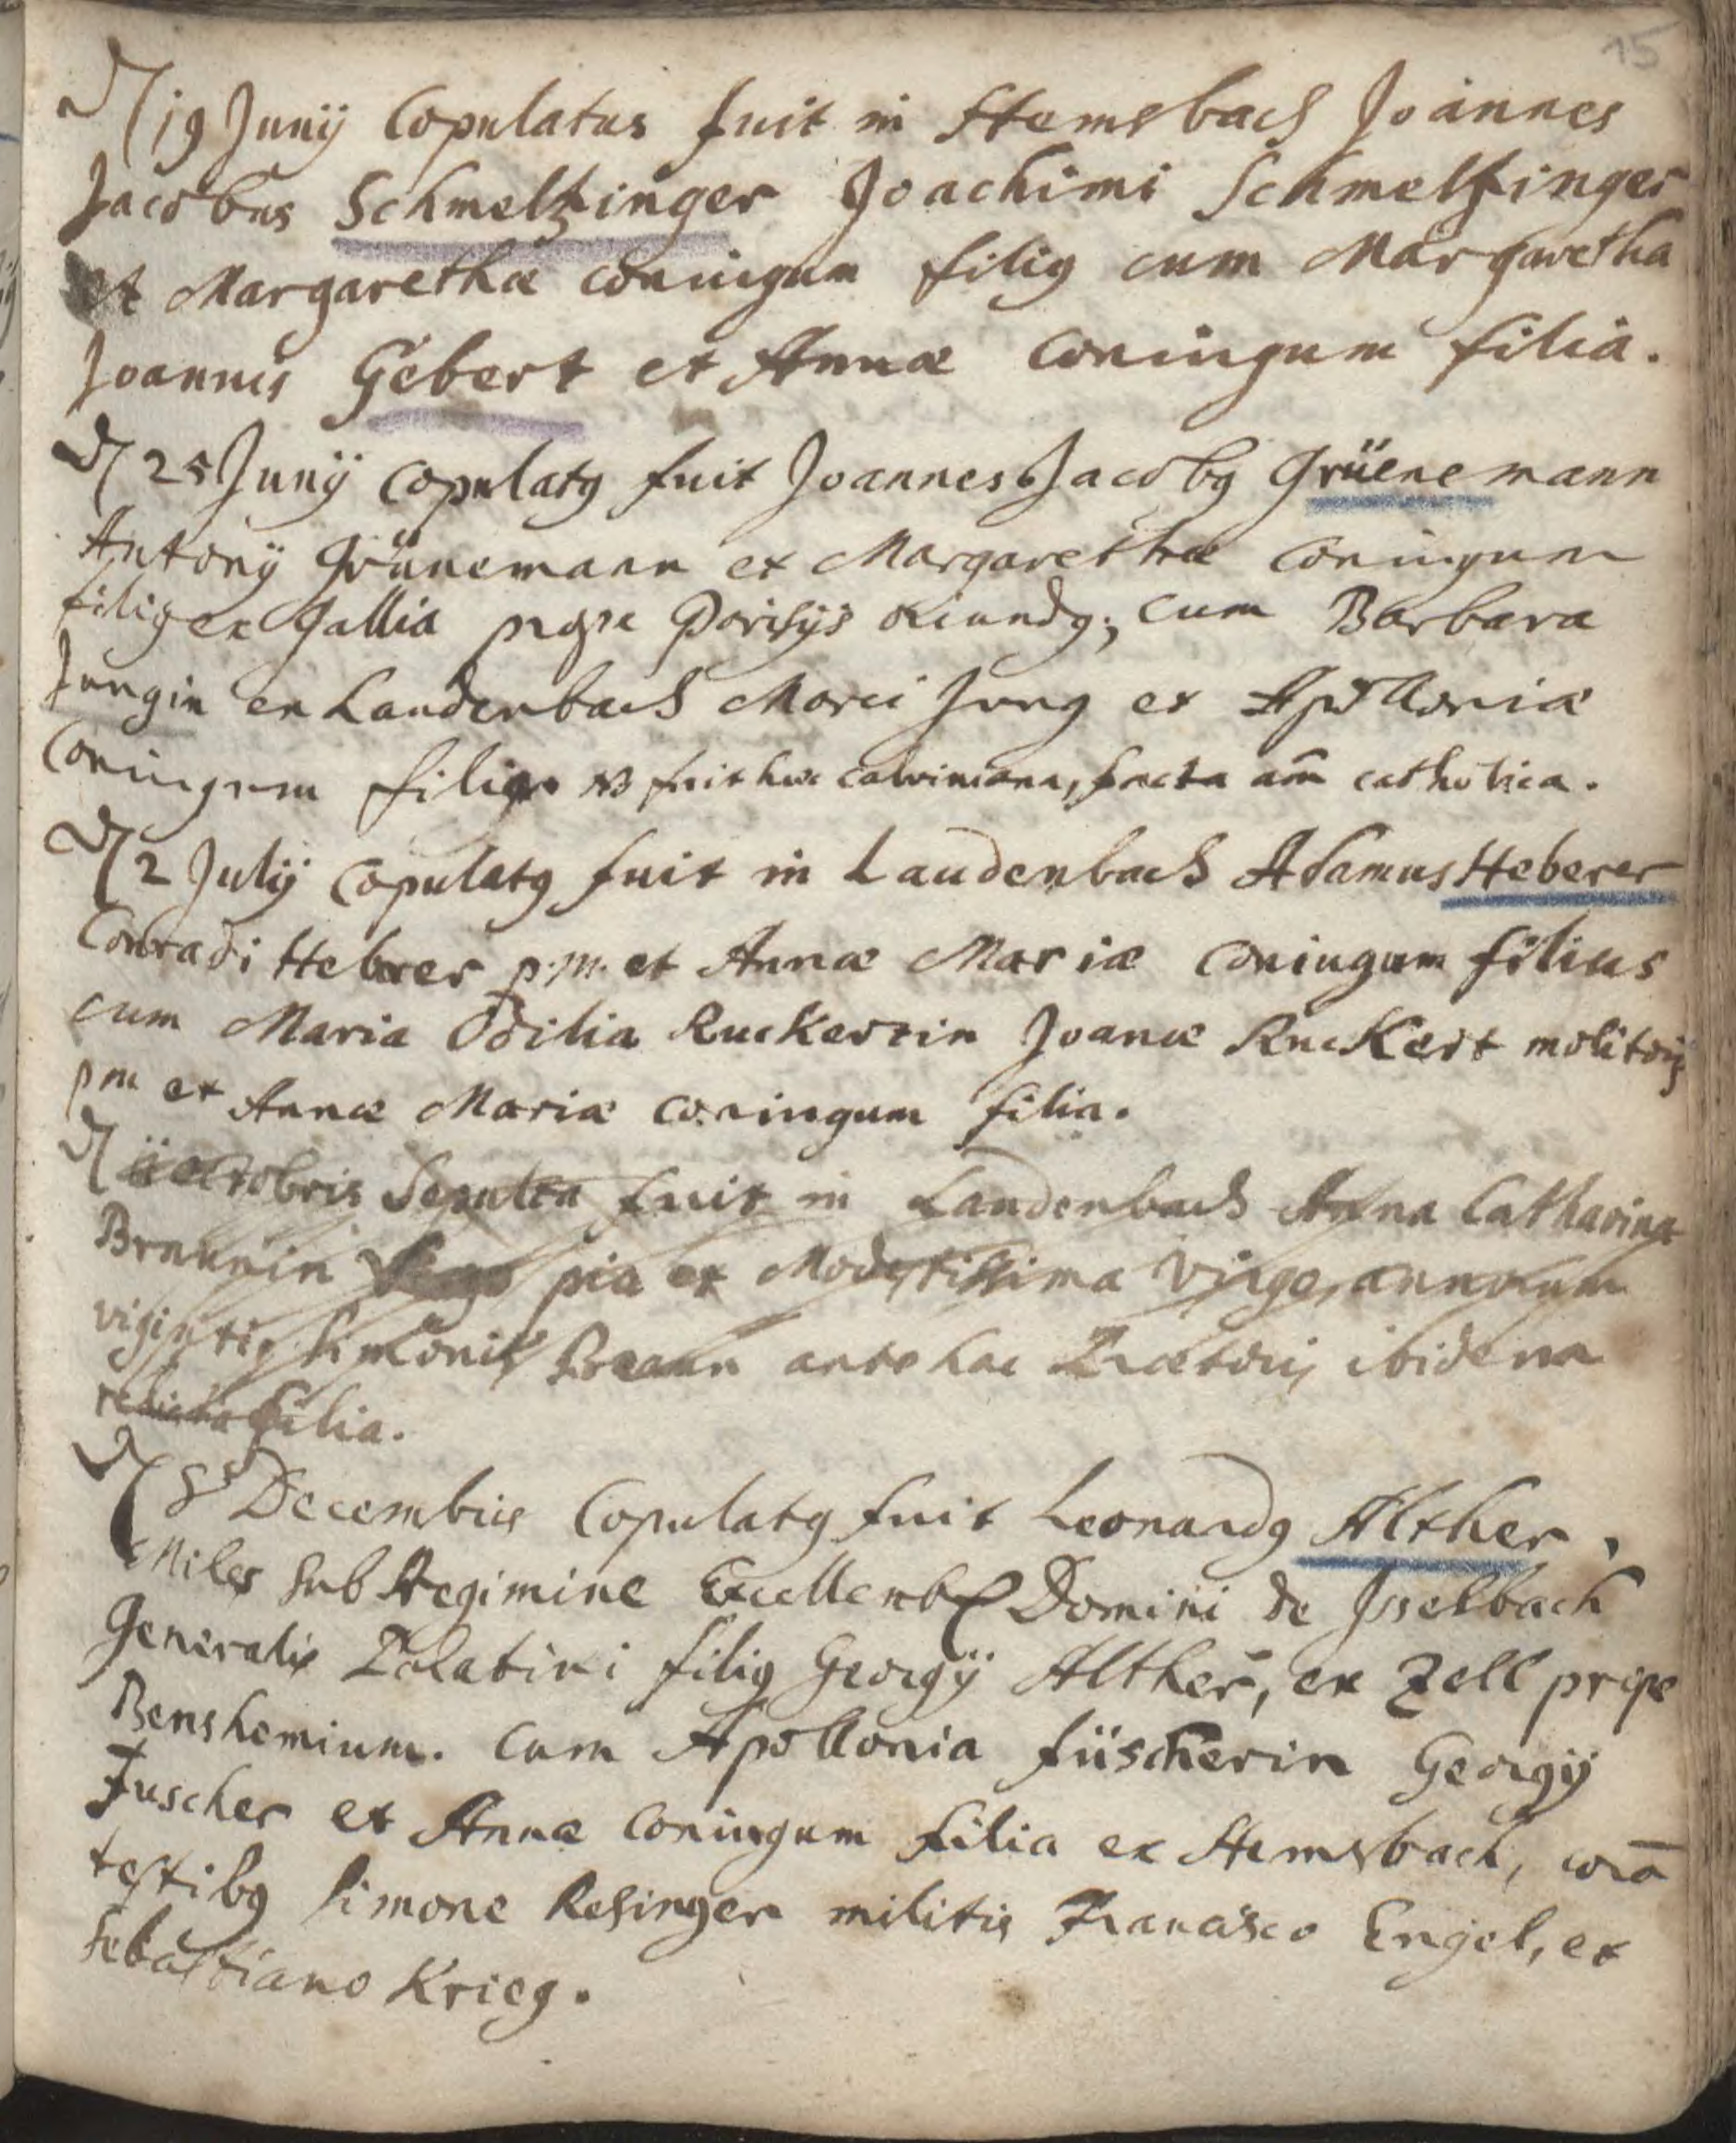 15
D 19 Junÿ Copulatus fuit in Hemsbach Joannes
Jacobus Schmeltzinger Joachimi Schmeltzinger
et Margarethæ coniugum filig cum Margaretha
Joannis Gebert et Annæ coniugum filia.
D 25 Junÿ copulatg fuit Joannes Jacobg Grüenemann
Antonÿ Grünemann et Margarethæ coniugum
filig ex Gallia prope Parisÿs oriundg; cum Barbara
Jungin ex Laudenbach Marci Jung et Apolloniæ
Coniugum filia NB fuit hæc calviniana, facta aũ catholica.
D 2 Julÿ copulatg fuit in Laudenbach Adamus Heberer
Conradi Heberer p.m. et Annæ Mariæ coniugum filius
cum Maria Odilia Ruckertin Joanæ RucKert molitoris
pm et Annæ Mariæ coniugum filia.
D octobris Sepulta fuit in Laudenbach Anna Catharina
Braunin pia et Modestissima virgo, annorum
viginti Simonis Braun ante hac Prætoris ibidem
relicta filia.
D 8 Decembris Copulatg fuit Leonardg Alther,
Miles sub Regimine Excellent Domini de Isselbach
Generalis Palatini filig Georgÿ Alther, ex Zell prope
Benshemium. cum Apollonia füscherin Georgÿ
Fuscher et Annæ coniugum filia ex Hemsbach, corã
testibg Simone Resinger militis Francisco Engel, et
Sebastiano Krieg.